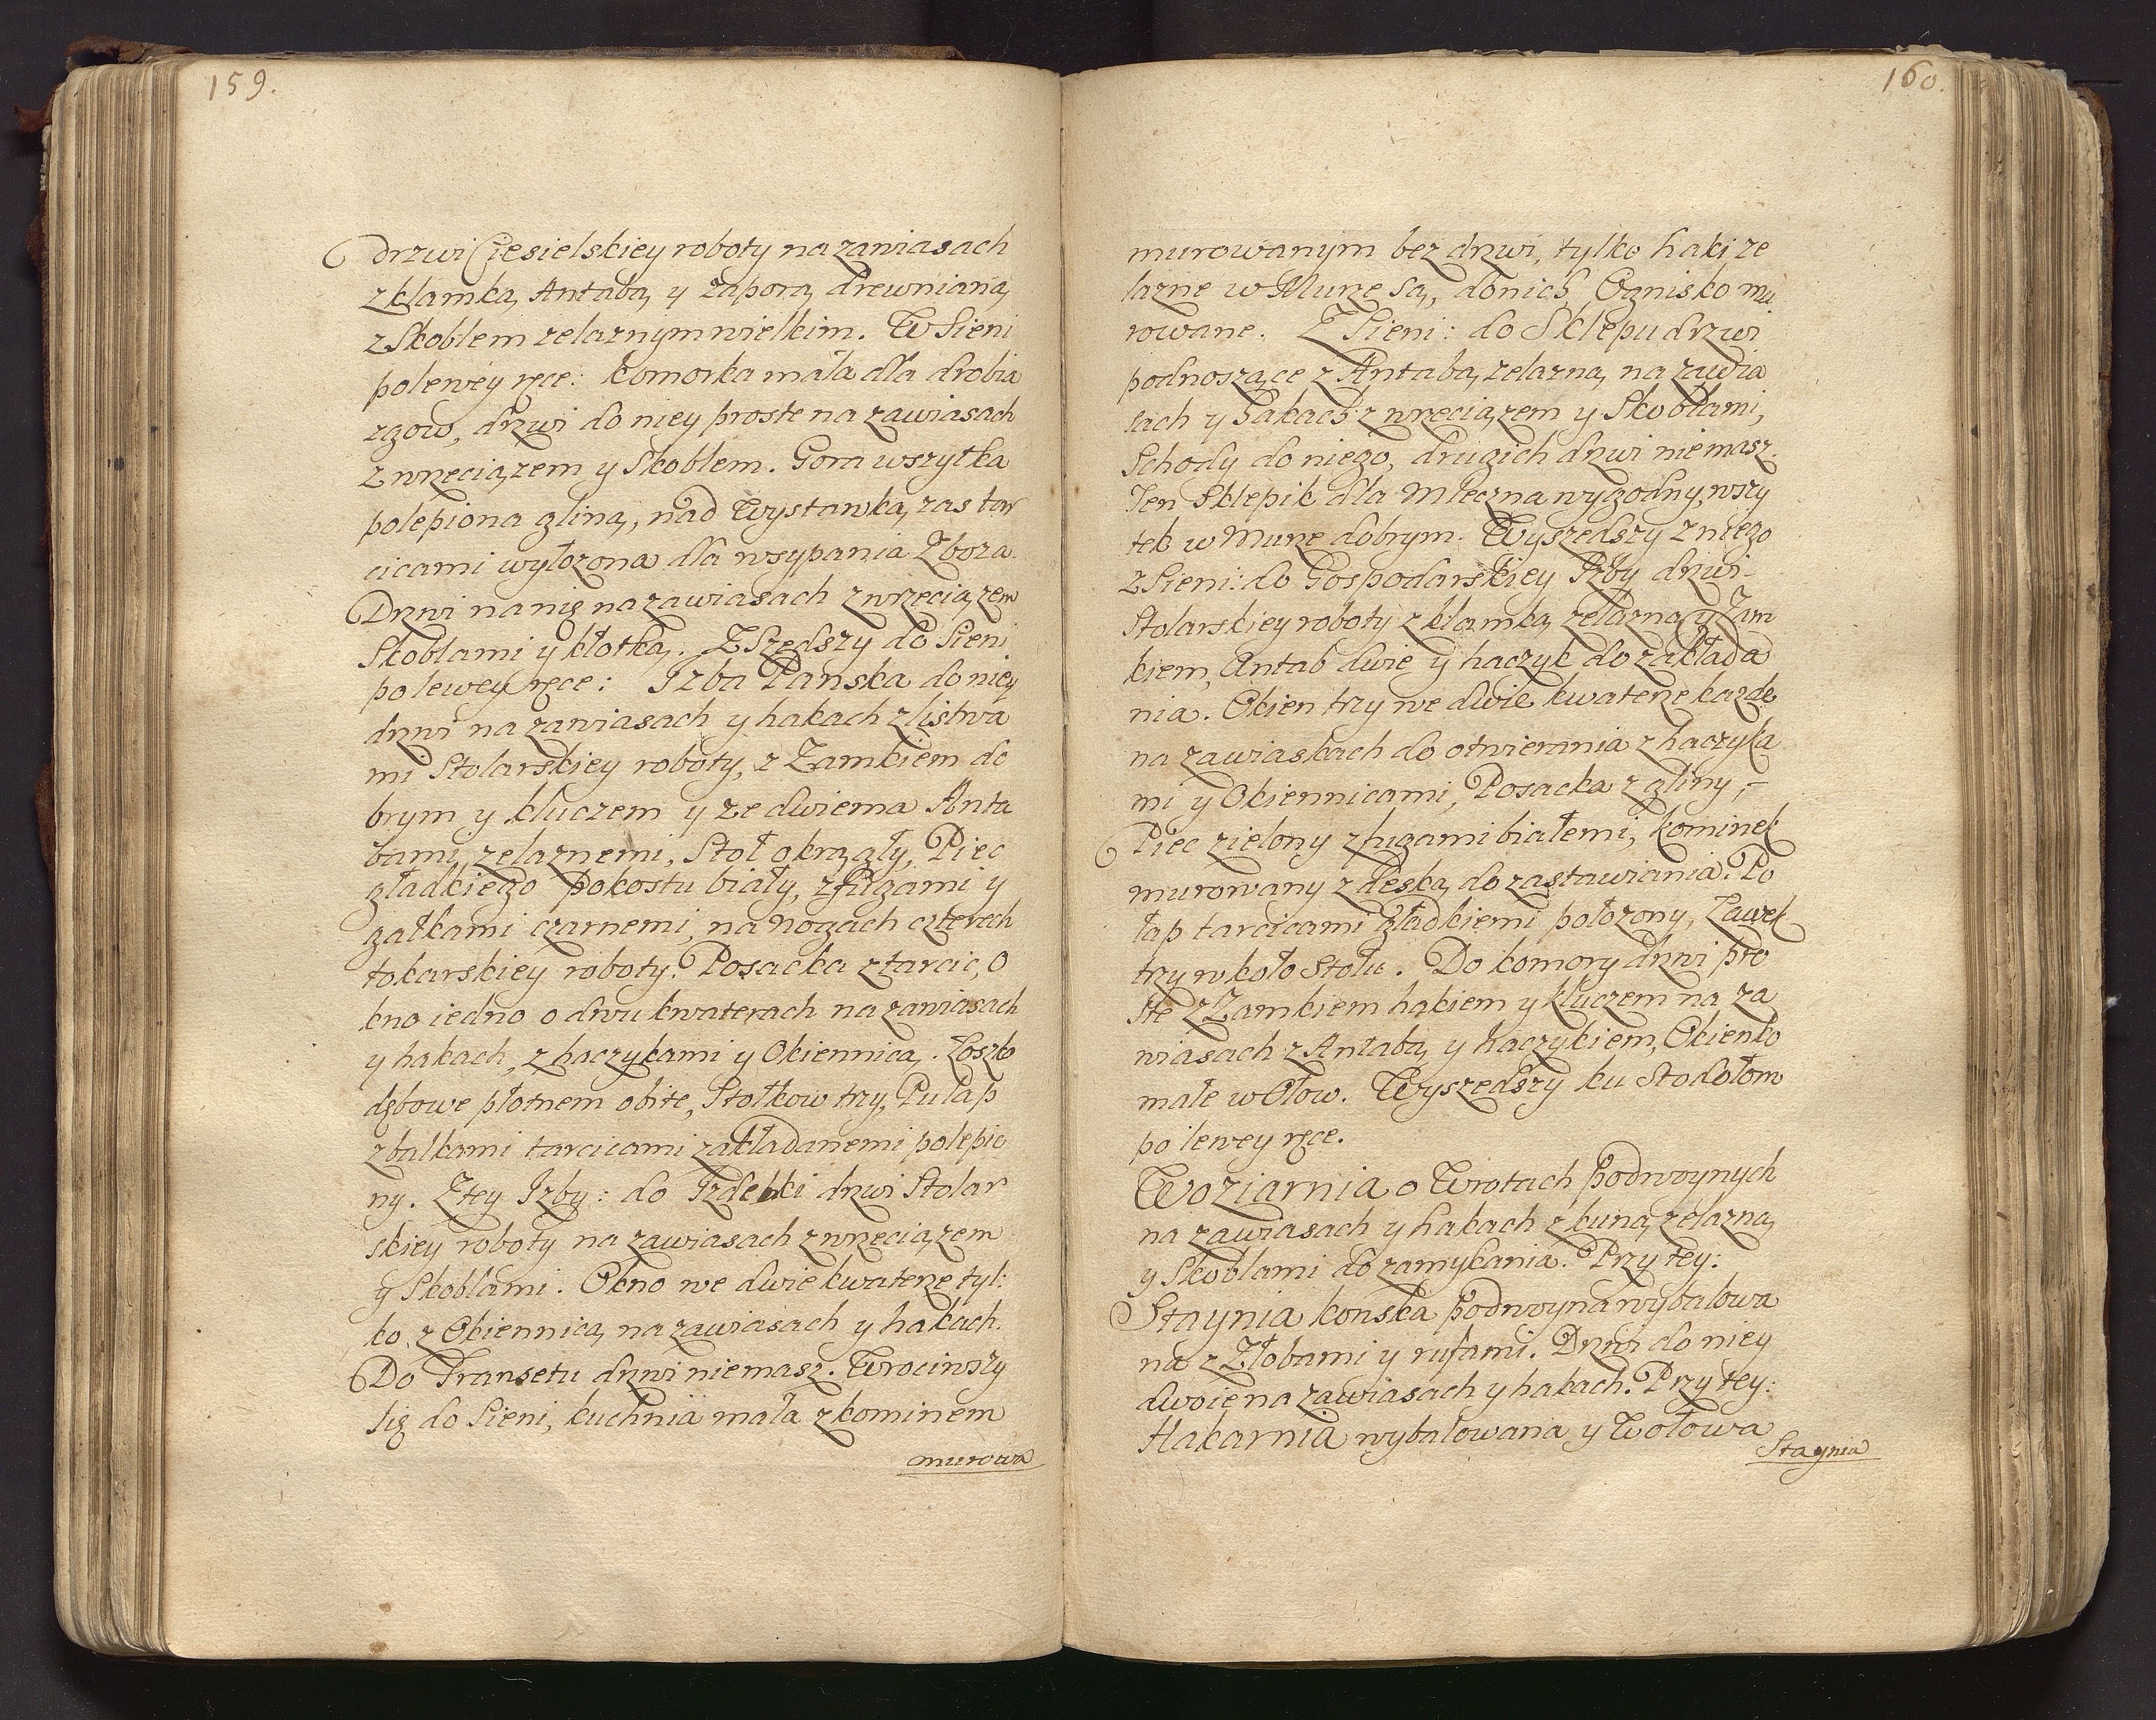 159.
drzwi Ciesielskiey roboty na zawiasach
z klamką, Antabą, y zaporą drewnianą,
z Skoblem zelaznym wielkim. W Sieni
po lewey ręce: komorka mała dla drobia
zgow, drzwi do niey proste na zawiasach
z wrzeciązem y Skoblem. Gora wszytka
polepiona gliną, nad Wystawką zas tar
cicami wyłozona dla wsypania Zboza.
Drzwi na nię na zawiasach z wrzeciązem
Skoblami y kłotką. ZSzedszy do Sieni
po lewey ręce: Izba Panska do niey
drzwi na zawiasach y hakach z listwa
mi Stolarskiey roboty, z Zamkiem do
brym y kluczem y ze dwiema Anta
bami, zelaznemi, Stoł okrągły, Piec
gładkiego pokostu biały, z fugami y
gałkami czarnemi, na nogach czterech
tokarskiey roboty. Posacka z tarcic, O
kno iedno o dwu kwaterach na zawiasach
y hakach, z haczykami y Okiennicą. Łoszko
dębowe płotnem obite, Stołkow trzy, Pułap
z balkami tarcicami zakładanemi polepio
ny. Z tey Izby: do Izdebki drzwi Stolar
skiey roboty na zawiasach z wrzeciązem
y Skoblami. Okno we dwie kwaterze tyl:
ko z Okiennicą na zawiasach y hakach.
Do Transetu drzwi niemasz. Wrociwszy
się do Sieni, kuchnia mała z kominem
murowa
160.
murowanym bez drzwi, tylko haki ze
lazne w Murze są, do nich Ognisko mu
rowane. Z Sieni: do Sklepu drzwi
podnoszące z Antabą, zelazną, na zawia
sach y hakach z wrzeciązem y Skoblami,
Schody do niego, drugich drzwi niemasz.
Ten Sklepik dla Mleczna wygodny, wszy
tek w Murze dobrym. Wyszedszy z niego
z Sieni: do Gospodarskiey Izby drzwi
Stolarskiey roboty z klamką zelazną y Zam
kiem, Antab dwie y haczyk do zakłada
nia. Okien trzy we dwie kwaterze kazde
na zawiaskach do otwierania z haczyka
mi y Okiennicami, Posacka z gliny,
Piec zielony z fugami białemi, kominek
murowany z deską do zastawiania. Po
łap tarcicami gładkiemi położony, Ławek
trzy w koło Stołu. Do komory drzwi pro
ste z Zamkiem hakiem y kluczem na za
wiasach z Antabą y haczykiem, Okienko
małe w Ołow. Wyszedszy ku Stodołom
po lewey ręce.
Woziarnia o Wrotach podwoynych
na zawiasach y hakach z kuną zelazną
y Skoblami do zamykania. Przy tey:
Staynia konska podwoyna wybalowa
na z Złobami y rufami. Drzwi do niey
dwoie na zawiasach y hakach. Przy tey:
Hakarnia wybalowana y Wołowa
Staynia